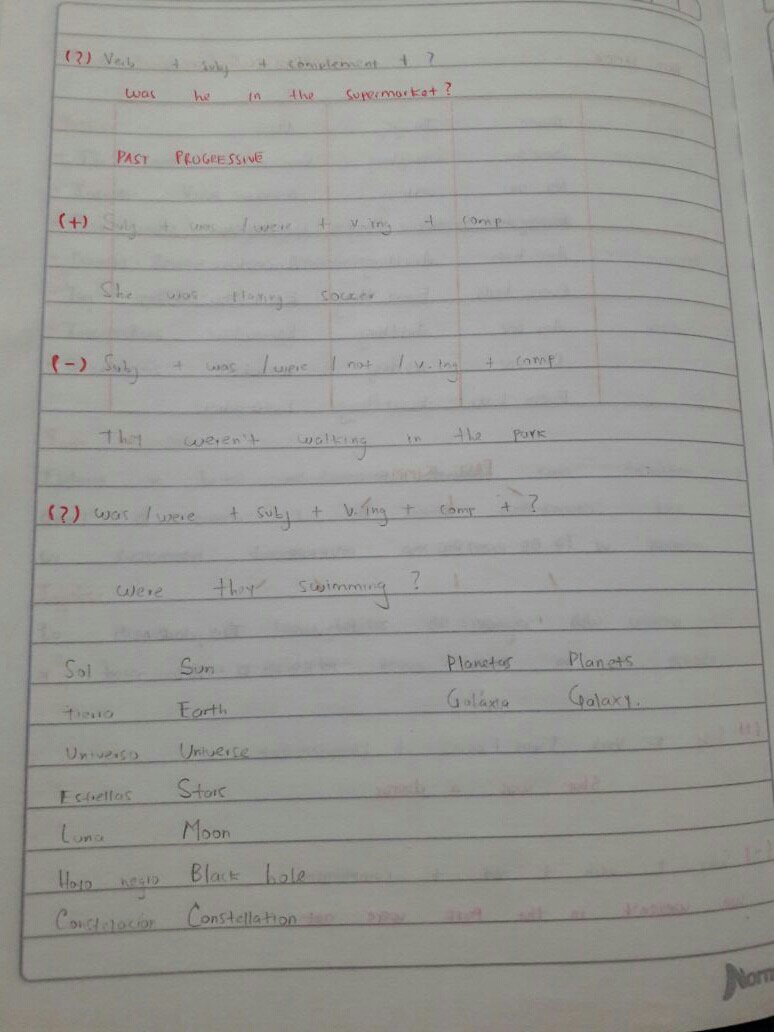 (?) Verb + subj + complement + ?
was he in the supermarket?
PAST PROGRESSIVE
(+) Subj + was / were + v. ing + comp
She was playing soccer
(-) Subj + was / were / not / v. ing + comp
They weren't walking in the park
(?) was / were + subj + v. ing + comp + ?
were they swimming?
Sol Sun Planetas Planets
tierra Earth Galaxia Galaxy.
Universo Universe
Estrellas Stars
Luna Moon
Hoyo negro Black hole
Constelación Constellation
Norm